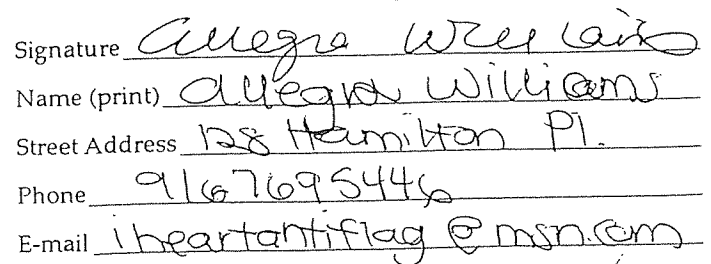 Signature Allegra Williams
Name (print) Allegra Williams
Street Address 128 Hamilton Pl.
Phone 9167695446
E-mail iheartantiflag@msn.com